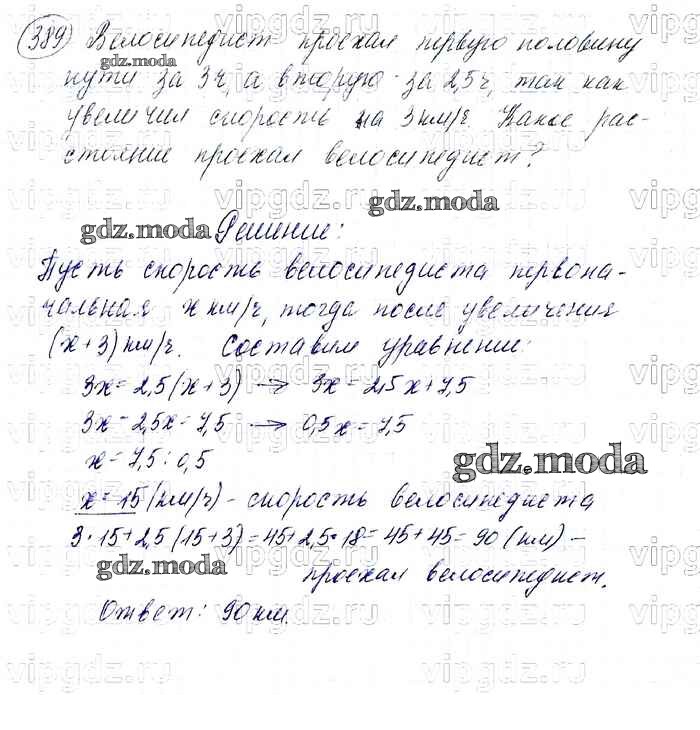 389 Велосипедист проехал первую половину
пути за 3ч, а вторую за 2,5ч, так как
увеличил скорость на 3 км/ч. Какое рас-
стояние проехал велосипедист?
Решение:
Пусть скорость велосипедиста первона-
чальная x км/ч, тогда после увеличения
(x+3) км/ч. Составим уравнение:
3x = 2,5(x+3) → 3x = 2,5x+7,5
3x - 2,5x = 7,5 → 0,5x = 7,5
x = 7,5 : 0,5
x = 15 (км/ч) - скорость велосипедиста
3·15+2,5(15+3) = 45+2,5·18 = 45+45 = 90 (км) -
проехал велосипедист.
Ответ: 90 км.
gdz.moda
gdz.moda
gdz.moda
gdz.moda
gdz.moda
vipgdz.ru